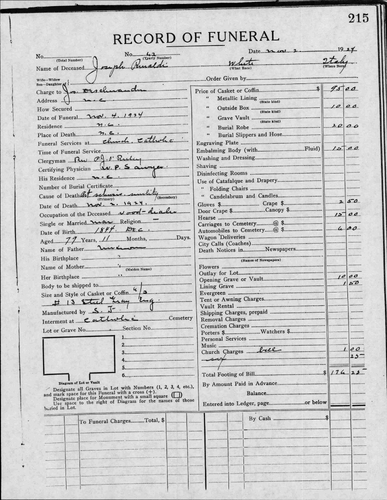 215
RECORD OF FUNERAL
No. No. 63 Date Nov. 2 1924
(Total Number) (Yearly Number)
Name of Deceased Joseph Rinaldi White Italy
(What Race) (Where Born)
Wife-Widow
Son-Daughter
Charge to Jos
Address N.C.
How Secured
Date of Funeral Nov. 4. 1924
Residence N.C.
Place of Death N.C.
Funeral Services at Church Catholic
Time of Funeral Service
Clergyman Rev.
Certifying Physician W.P.S.
His Residence N.C.
Number of Burial Certificate
Cause of Death senility
(Primary) (Secondary)
Date of Death Nov. 2. 1924.
Occupation of the Deceased wood-dealer
Single or Married Mar Religion
Date of Birth Dec.
Aged 79 Years, 11 Months, Days
Name of Father unknown
His Birthplace
Name of Mother
(Maiden Name)
Her Birthplace
Body to be shipped to
Size and Style of Casket or Coffin 6/3
# 13 Gray
Manufactured by S. J.
Interment at Catholic Cemetery
Lot or Grave No. Section No.
1.
2.
3.
4.
5.
6.
Diagram of Lot or Vault
Designate all Graves in Lot with Numbers (1, 2, 3, 4, etc.), and mark space for this Funeral with a cross (+).
Designate place for Monument with a small square
Use space to the right of Diagram for the names of those Buried in Lot.
Order Given by
Price of Casket or Coffin $ 95.00
" Metallic Lining
(State kind)
" Outside Box 10 00
(State kind)
" Grave Vault
(State kind)
" Burial Robe 20.00
(State kind)
" Burial Slippers and Hose
Engraving Plate
Embalming Body (with Fluid) 15 00
Washing and Dressing
Shaving
Use of Catafalque and Drapery
" Folding Chairs
" Candelabrum and Candles
Gloves $ Crape $ 2 50
Door Crape $ Canopy $
Hearse 15 00
Carriages to Cemetery @ $
Automobiles to Cemetery @ $ 6.00
Wagon Deliveries
City Calls (Coaches)
Death Notices in Newspapers
(Names of Newspapers)
Flowers
Outlay for Lot
Opening Grave or Vault 10 00
Lining Grave 1 50
Evergreen
Tent or Awning Charges
Vault Rental
Shipping Charges, prepaid
Removal Charges
Cremation Charges
Porters $ Watchers $
Personal Services
Music
Church Charges bill 1 00
25
Total Footing of Bill $ 176 25
By Amount Paid in Advance
Balance
Entered into Ledger, page or below
To Funeral Charges, Total $ By Cash $